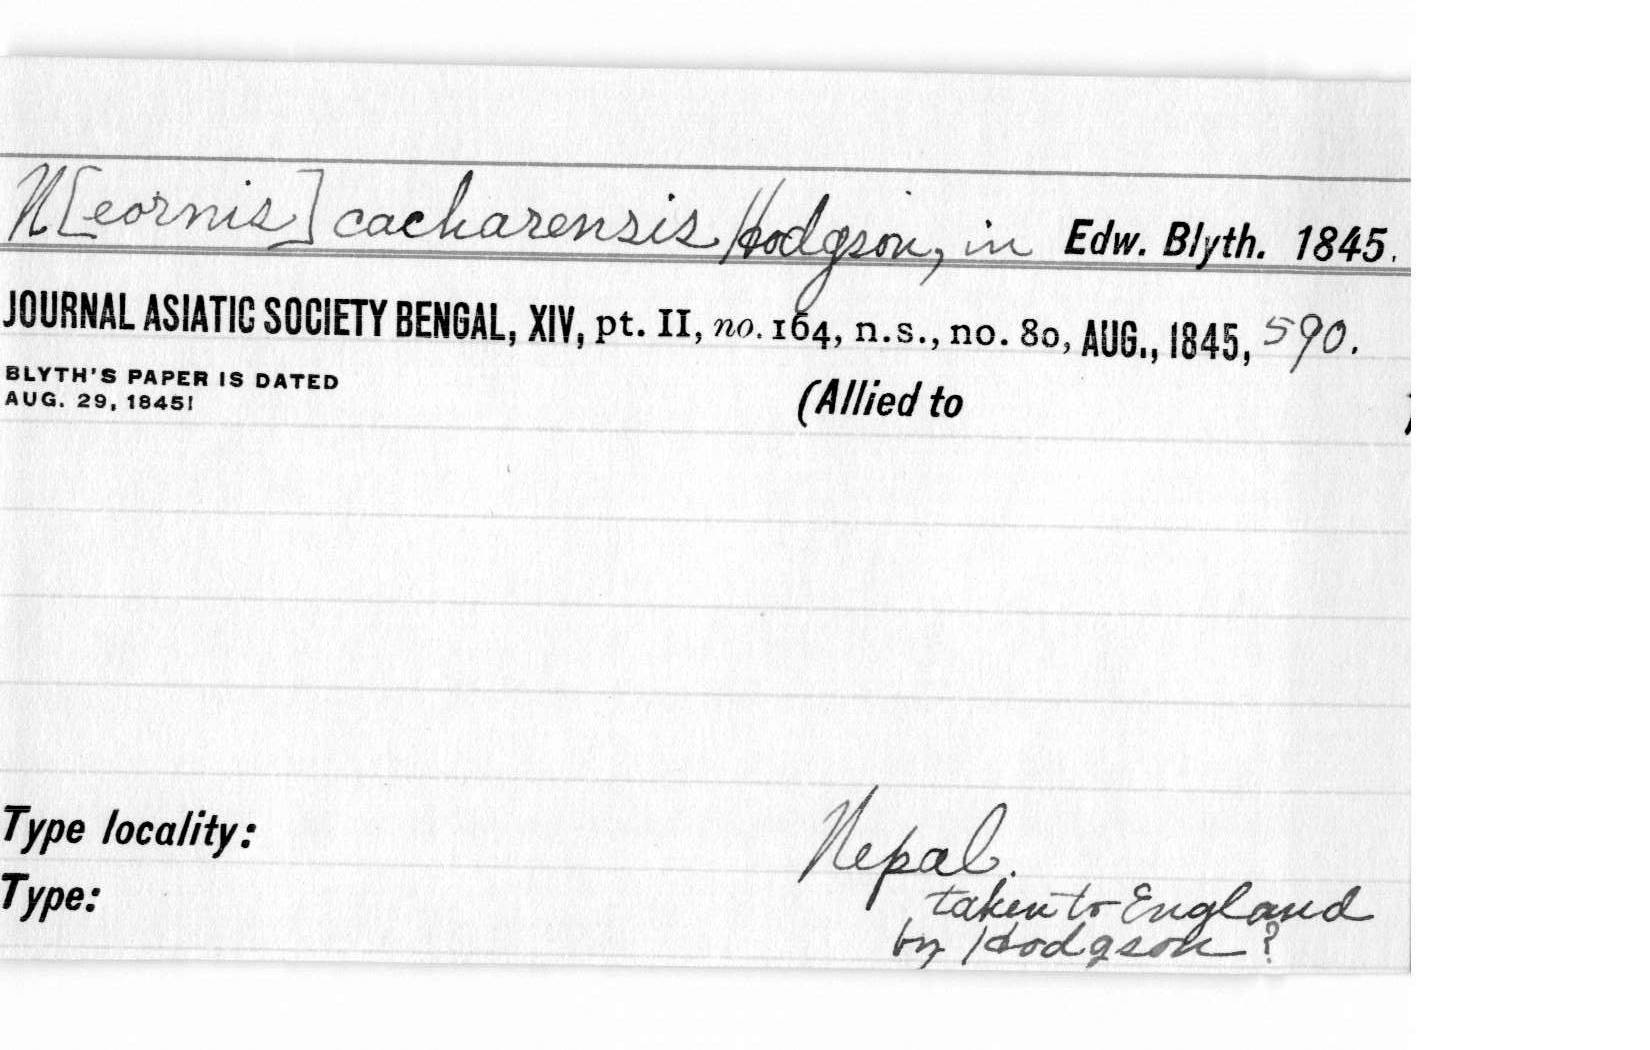 N[eornis] cacharensis Hodgson, in Edw. Blyth. 1845.
JOURNAL ASIATIC SOCIETY BENGAL, XIV, pt. II, no. 164, n.s., no. 80, AUG., 1845, 590.
BLYTH'S PAPER IS DATED
AUG. 29, 1845!
(Allied to )
Type locality: Nepal.
Type: taken to England
by Hodgson?